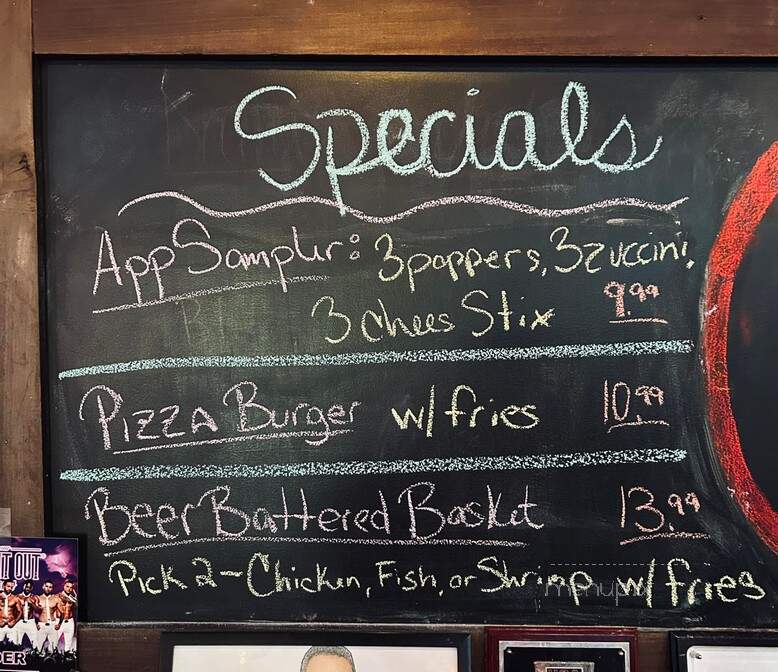 Specials
App Sampler: 3 poppers, 3 zuccini,
3 Chees Stix 9.99
Pizza Burger w/fries 10.99
Beer Battered Basket 13.99
Pick 2 - Chicken, Fish, or Shrimp w/fries
menupix
T OUT
DER